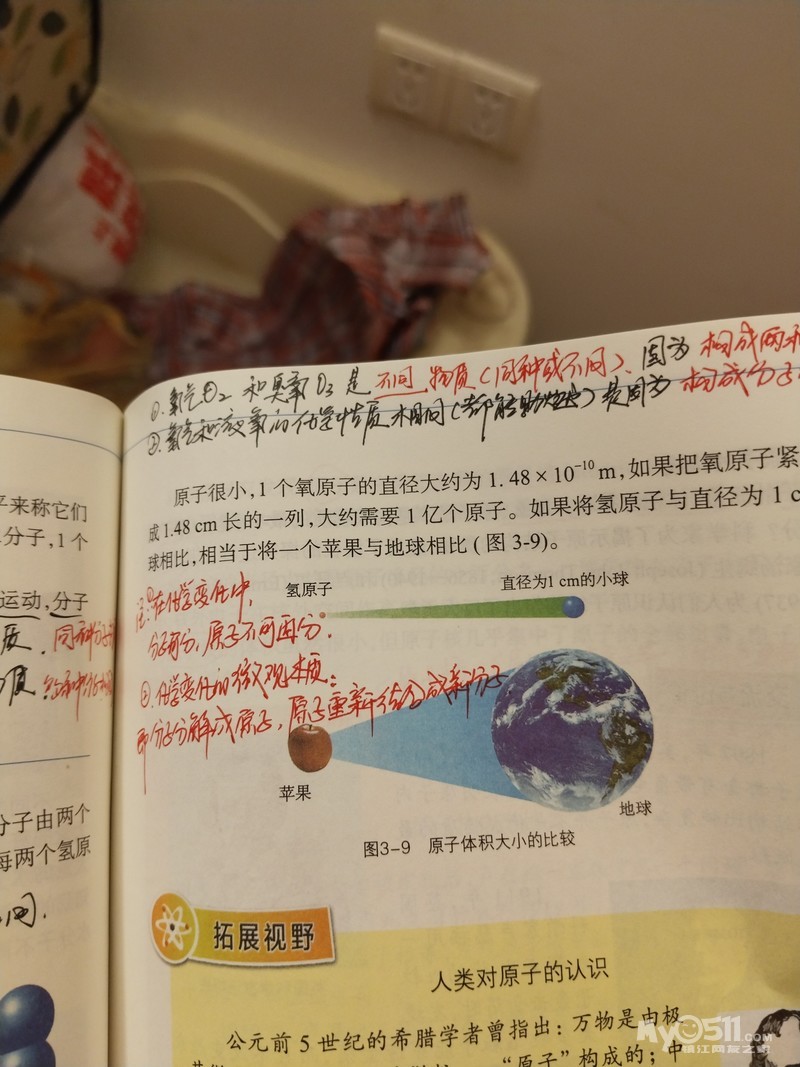 ①. 氧气O2 和臭氧O3 是 不同 物质(同种或不同)、因为 构成两
②. 氧气和液氧的化学性质 相同(都能助燃) 是因为 构成分子
原子很小,1 个氧原子的直径大约为 1.48×10-10 m,如果把氧原子紧
成 1.48 cm 长的一列,大约需要 1 亿个原子。如果将氢原子与直径为 1 c
球相比,相当于将一个苹果与地球相比(图 3-9)。
氢原子
直径为1 cm的小球
①在化学变化中,
分子可分,原子不可再分.
②.化学变化的微观本质:
即分子分解成原子,原子重新结合成新分子
苹果
地球
图3-9 原子体积大小的比较
拓展视野
人类对原子的认识
公元前 5 世纪的希腊学者曾指出:万物是由极
“原子”构成的;中
来称它们
分子,1 个
运动,分子
质.同种分子
分子由两个
每两个氢原
同.
MY0511.COM
镇江网友之家